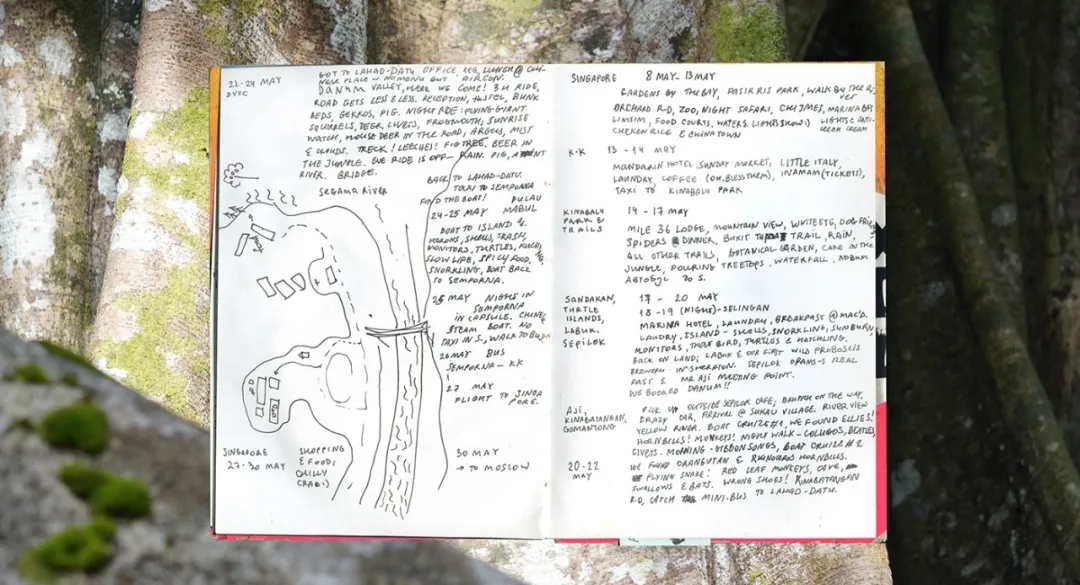 22-24 MAY
DVFC
GOT TO LAHAD-DATU OFFICE REG, LUNCH @
NEW PLACE W NO MENU BUT AIRCON.
DANUM VALLEY, HERE WE COME! 3H RIDE,
ROAD GETS LESS & LESS, RECEPTION, HOSTEL, BUNK
BEDS, GEKKOS, PIG. NIGHT RIDE: FLYING GIANT
SQUIRRELS, DEER, CIVETS, FROGMOUTH; SUNRISE
WATCH, MOUSE DEER IN THE ROAD, ARGUS, MIST
& CLOUDS. TRECK! LEECHES! FIGTREE. BEER IN
THE JUNGLE. EVE RIDE IS OFF - RAIN. PIG,
RIVER. BRIDGE.
SEGAMA RIVER
BACK TO LAHAD-DATU.
TAXI TO SEMPORNA
FIND THE BOAT! PULAU
24-25 MAY MABUL
BOAT TO ISLAND
HERONS, SHELLS, TRASH,
MONITORS, TURTLES,
SLOW LIFE, SPICY FOOD,
SNORKLING, BOAT BACK
TO SEMPORNA.
25 MAY NIGHT IN
SEMPORNA
IN CAPSULE.
STEAM BOAT. NO
TAXI IN S., WALK TO BUS
26 MAY BUS
SEMPORNA - KK
27 MAY
FLIGHT TO SINGA
PORE.
SINGAPORE
27-30 MAY
SHOPPING
& FOOD;
CHILLY
CRAB:)
30 MAY
→ TO MOSCOW
SINGAPORE 8 MAY - 13 MAY
GARDENS BY THE BAY, PASIR RIS PARK, WALK BY THE RI
VER
ORCHARD RD, ZOO, NIGHT SAFARI, CHIJMES, MARINA BAY
LIMSIM, FOOD COURTS, WATER & LIGHT SHOW:) LIGHTS &
CHICKEN RICE & CHINATOWN CREAM
K-K 13 - 14 MAY
MANDARIN HOTEL, SUNDAY MARKET, LITTLE ITALY,
LAUNDRY, COFFEE (OH, BLESS THEM), INAMAM (TICKETS),
TAXI TO KINABALU PARK
KINABALU
PARK &
TRAILS
14 - 17 MAY
MILE 36 LODGE, MOUNTAIN VIEW,
SPIDERS @ DINNER, BUKIT TRAIL, RAIN,
ALL OTHER TRAILS, BOTANICAL GARDEN, CAKE IN THE
JUNGLE, POURING TREETOPS, WATERFALL,
SANDAKAN,
TURTLE
ISLANDS,
LABUK.
SEPILOK
17 - 20 MAY
18 - 19 (NIGHT) - SELINGAN
MARINA HOTEL, LAUNDRY, BREAKFAST @ MAC'D.
LAUDRY, ISLAND - SHELLS, SNORKLING, SUNBURN,
MONITORS, THAT BIRD, TURTLES & HATCHLING.
BACK ON LAND; LABUK & OUR FIRST WILD PROBOSCIS
IN SHERATON. SEPILOK ORANG-S REAL
FAST & MR AJI MEETING POINT.
WE BOOKED DANUM!!
AJI,
KINABATANGAN,
GOMANTONG
PICK UP OUTSIDE SEPILOK CAFE, BRUNCH ON THE WAY,
CRAZY CAR, ARRIVAL @ SUKAU VILLAGE. RIVER VIEW
YELLOW RIVER. BOAT CRUIZE #1, WE FOUND ELLIES!
HORNBILLS! MONKEYS! NIGHT WALK - COLUGOS, BEATLES,
CIVETS. MORNING - GIBBON SONGS, BOAT CRUIZE #2
20-22
MAY
WE FOUND ORANGUTAN & RHINOCEROS HORNBILLS.
FLYING SNAKE! RED LEAF MONKEYS, CAVE,
SWALLOWS & BATS. WRONG SHOES! KINABATANGAN
RD, CATCH MINI-BUS TO LAHAD-DATU.